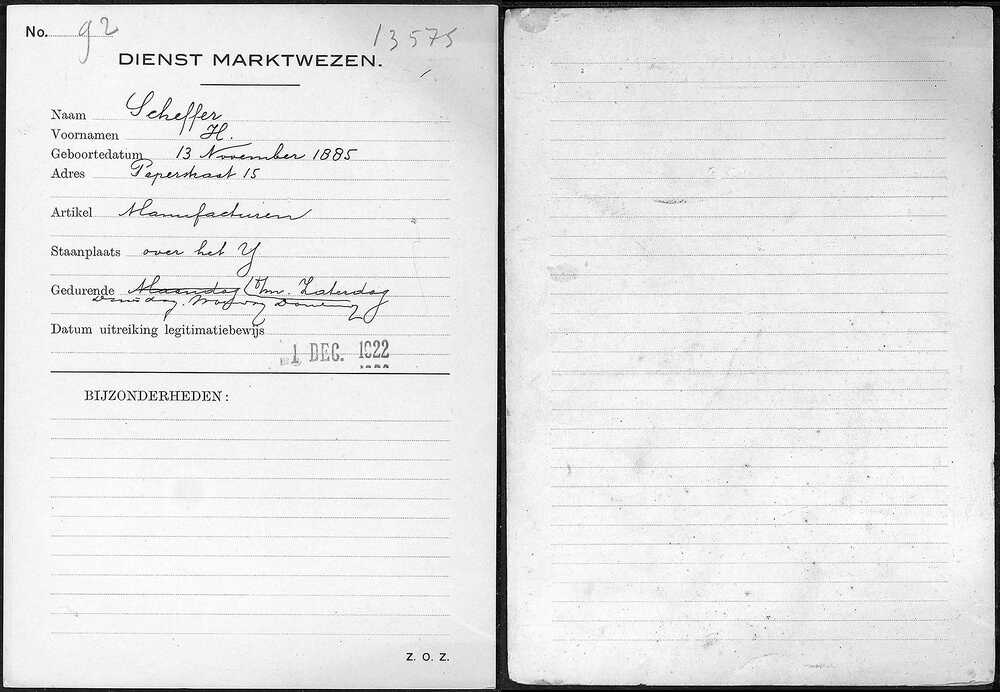 No. 92
13575
DIENST MARKTWEZEN.
Naam Scheffer
Voornamen H.
Geboortedatum 13 November 1885
Adres Peperstraat 15
Artikel Manufacturen
Staanplaats over het Y
Gedurende Maandag t/m. Zaterdag
Dinsdag. Donderdag
Datum uitreiking legitimatiebewijs
1 DEC. 1922
BIJZONDERHEDEN:
Z. O. Z.